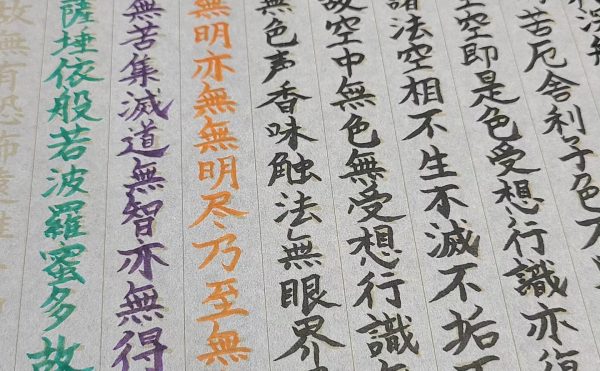 苦厄舎利子色不
空空即是色受想行識亦復
諸法空相不生不滅不垢不
故空中無色無受想行識無
無色声香味触法無眼界
無明亦無無明尽乃至無
無苦集滅道無智亦無得
薩埵依般若波羅蜜多故
故無有恐怖遠